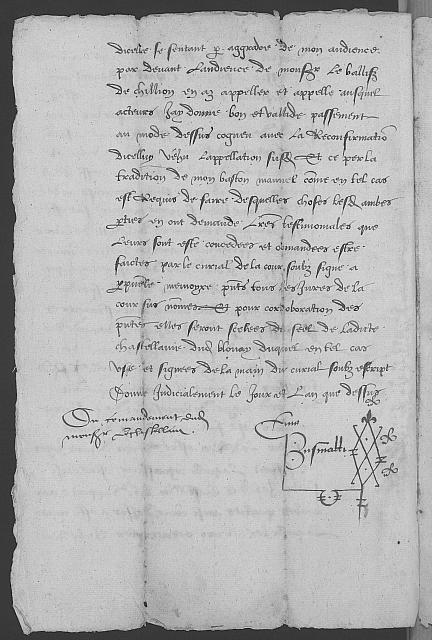 dicelle se sentant p aggravée de mon audience
par devant Laudience de monsr Le ballif
de chillion en a appeller et appelle ausquel
acteurs Jay donne bon et vallide passement
au mode dessus cogneu avec La Reconfirmation
dicelluy Lappellation Et ce par la
tradition de mon baston mannel come en tel cas
est Requis de faire desquelles choses ambes
pties en ont demande Lres testimoniales que
Leurs sont este concedees et comandees estre
faictes par le curial de la cour soubz signe a
ppetuelle memoyre pnts tous les Jures de la
cour sus nomes Et pour coroboration des
pntes elles seront seelees du seel de Ladicte
chastellanie dud blonay duquel en tel cas
use et signees de la main du curial soubz escript
Donne Judicialement le Jour et Lan que dessus
Du comandement dud
monsr